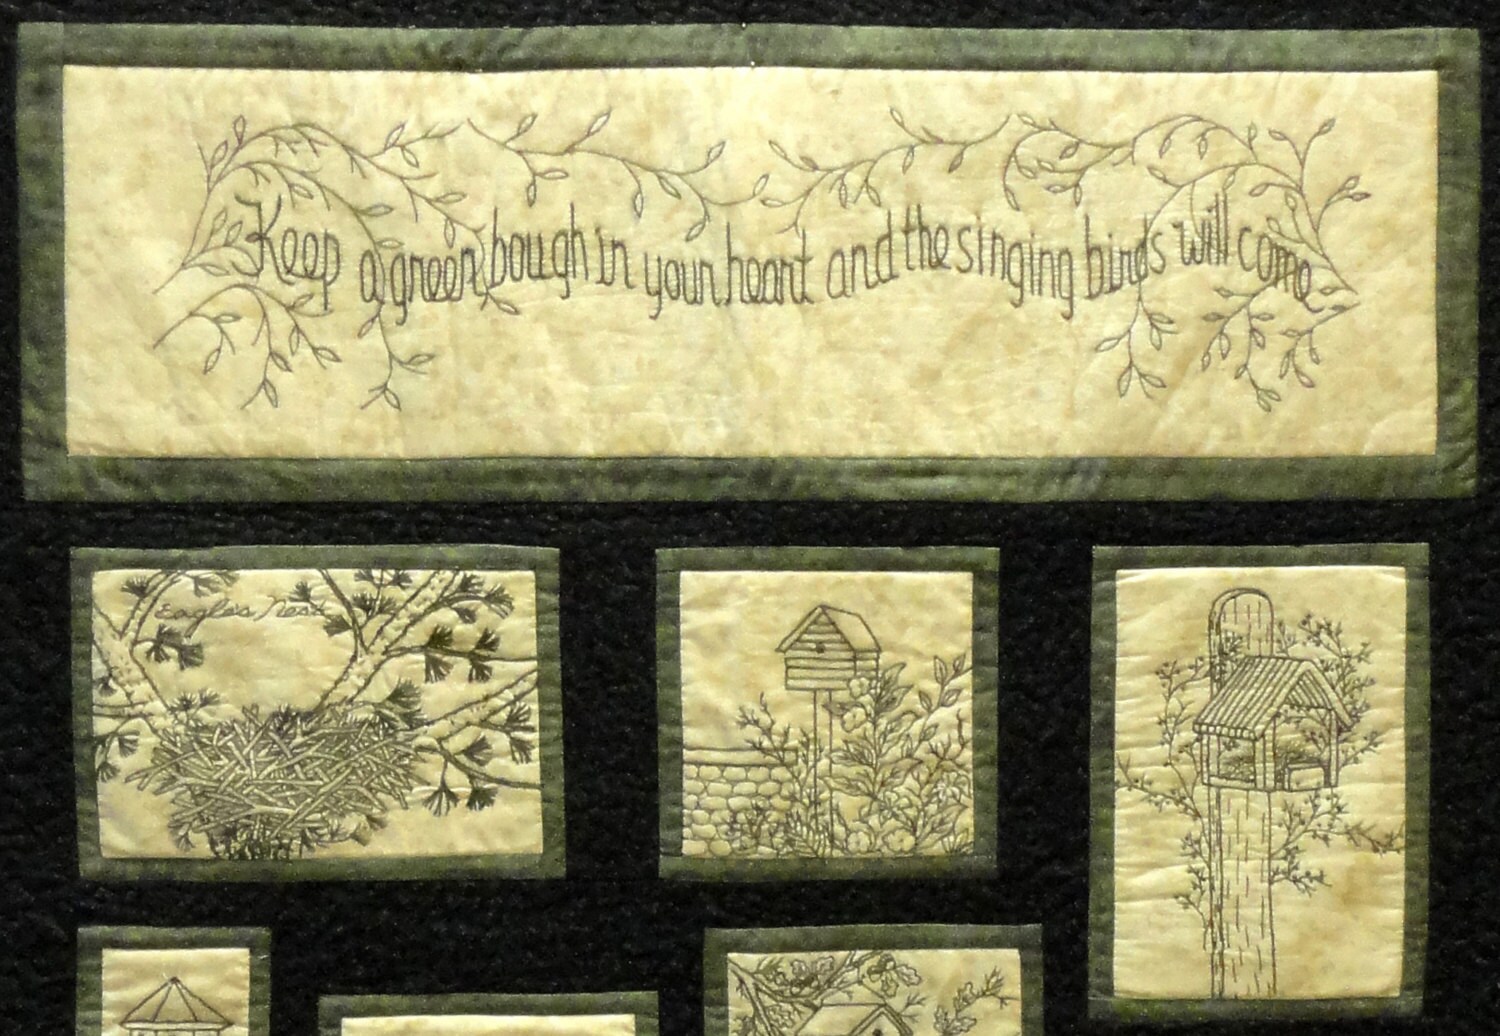 Keep a green bough in your heart and the singing birds will come
Eagle's Nest